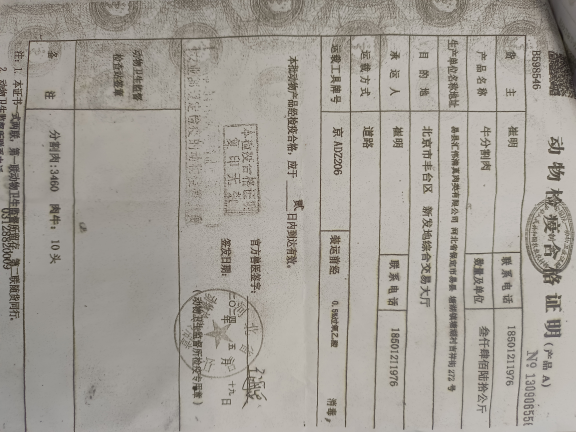 动物检疫合格证明(产品 A)
B598546
№ 13090655
货 主 崔明 联系电话 18501211976
产品名称 牛分割肉 数量及单位 叁仟肆佰陆拾公斤
生产单位名称地址
目 的 地 北京市丰台区 新发地综合交易大厅
承 运 人 崔明 联系电话 18501211976
运载方式 道路
运载工具牌号 京 ADZ206 装运前经 0.5%过氧乙酸 消毒。
本批动物产品经检疫合格，应于 贰 日内到达有效。
官方兽医签字：
签发日期： 二〇二四 年 五 月 十九 日
(动物卫生监督所检疫专用章)
本检疫合格证明
复印无效
动物卫生监督
检查站签章
备 注 分割肉：3460 肉牛：10 头
03128820009
注：1. 本证书一式两联，第一联动物卫生监督所留存，第二联随货同行。